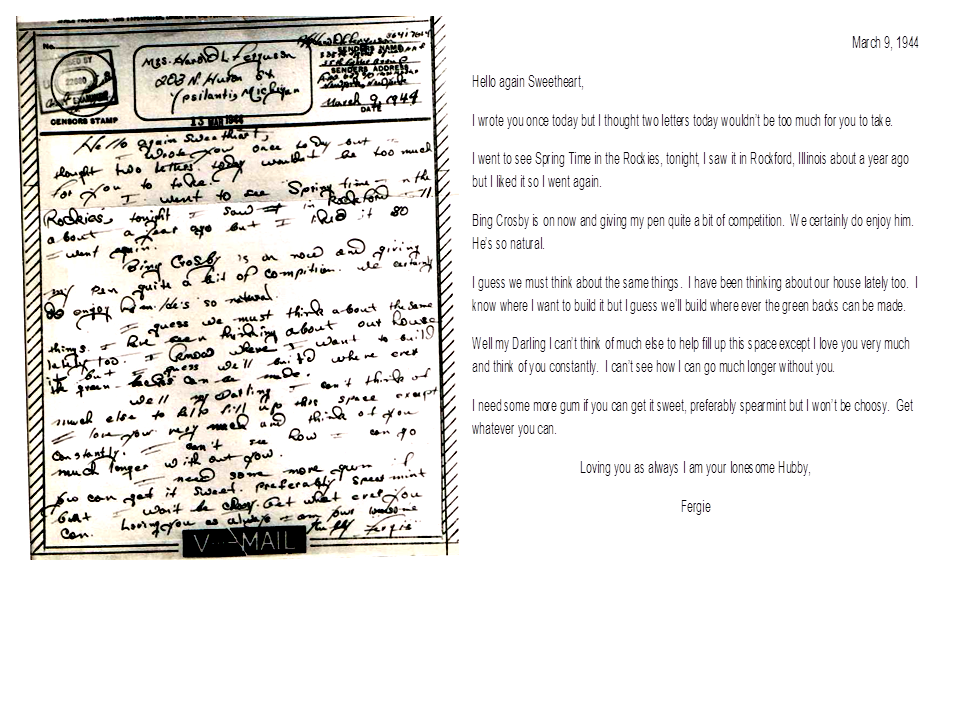 No.
CENSORS STAMP
Mrs. Harold L. Ferguson
203 N. Huron St
Ypsilanti, Michigan
SENDERS NAME
SENDERS ADDRESS
March 9, 1944
DATE
13 MAR 1944
Hello again Sweetheart,
I wrote you once today but I
thought two letters today wouldn't be too much
for you to take.
I went to see Spring time in the
Rockies, tonight I saw it in Rockford Ill
about a year ago but I liked it so
I went again.
Bing Crosby is on now and giving
my pen quite a bit of compition. We certainly
do enjoy him. He's so natural.
I guess we must think about the same
things. I have been thinking about our house
lately too. I know where I want to build
it but I guess we'll build where ever
the green backs can be made.
Well my Darling I can't think of
much else to help fill up this space except
I love you very much and think of you
constantly. I can't see how I can go
much longer with out you.
I need some more gum if
you can get it sweet. preferably spearmint
but I won't be choosy. Get what ever you
can. Loving you as always I am your lonesome
Hubby Fergie
V···—MAIL
March 9, 1944
Hello again Sweetheart,
I wrote you once today but I thought two letters today wouldn't be too much for you to take.
I went to see Spring Time in the Rockies, tonight, I saw it in Rockford, Illinois about a year ago
but I liked it so I went again.
Bing Crosby is on now and giving my pen quite a bit of competition. We certainly do enjoy him.
He's so natural.
I guess we must think about the same things. I have been thinking about our house lately too. I
know where I want to build it but I guess we'll build where ever the green backs can be made.
Well my Darling I can't think of much else to help fill up this space except I love you very much
and think of you constantly. I can't see how I can go much longer without you.
I need some more gum if you can get it sweet, preferably spearmint but I won't be choosy. Get
whatever you can.
Loving you as always I am your lonesome Hubby,
Fergie